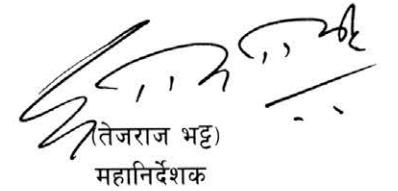 (तेजराज भट्ट)
महानिर्देशक